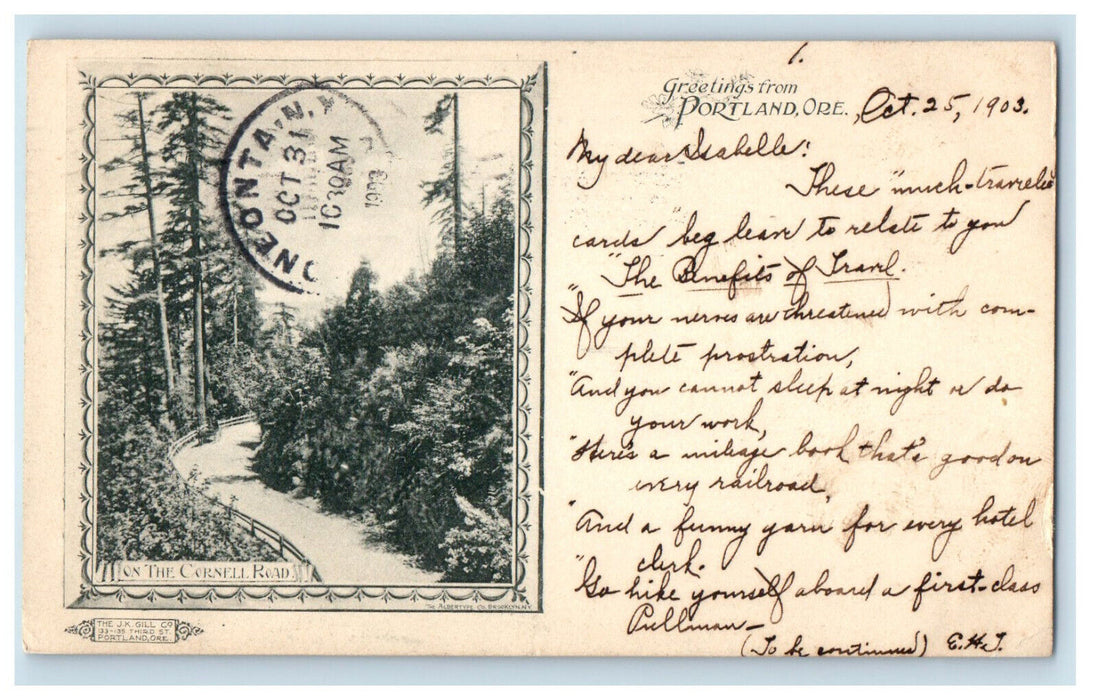 ONEONTA, N.
OCT 31
1030AM
1903
ON THE CORNELL ROAD
THE ALBERTYPE CO. BROOKLYN, N.Y.
THE J.K. GILL CO
133-135 THIRD ST.
PORTLAND, ORE.
1.
Greetings from
PORTLAND, ORE., Oct. 25, 1903.
My dear Isabelle:
These "much-traveled
cards" beg leave to relate to you
"The Benefits of Travel.
"If your nerves are threatened with com-
plete prostration,
"And you cannot sleep at night or do
your work,
"Here's a mileage book that's good on
every railroad,
"And a funny yarn for every hotel
clerk.
"Go hike yourself aboard a first-class
Pullman—
(To be continued) E.H.J.